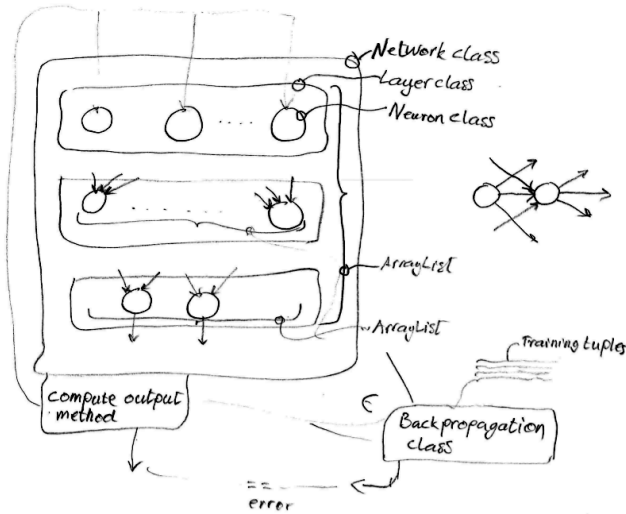 Network class
Layer class
Neuron class
ArrayList
ArrayList
Training tuples
compute output
method
ϵ
Backpropagation
class
==
error